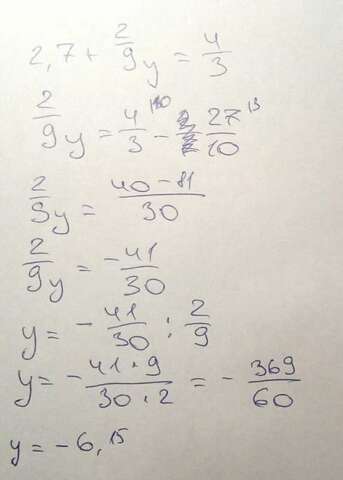 2,7 + 2/9 y = 4/3
2/9 y = 4/3 ^(10 - 27/10 ^(3
2/9 y = 40 - 81/30
2/9 y = - 41/30
y = - 41/30 : 2/9
y = - 41 · 9/30 · 2 = - 369/60
y = -6,15